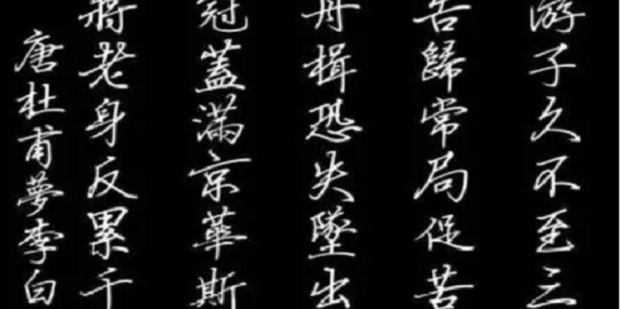 游子久不至三
告歸常局促苦
舟楫恐失墜出
冠蓋滿京華斯
將老身反累千
唐杜甫夢李白